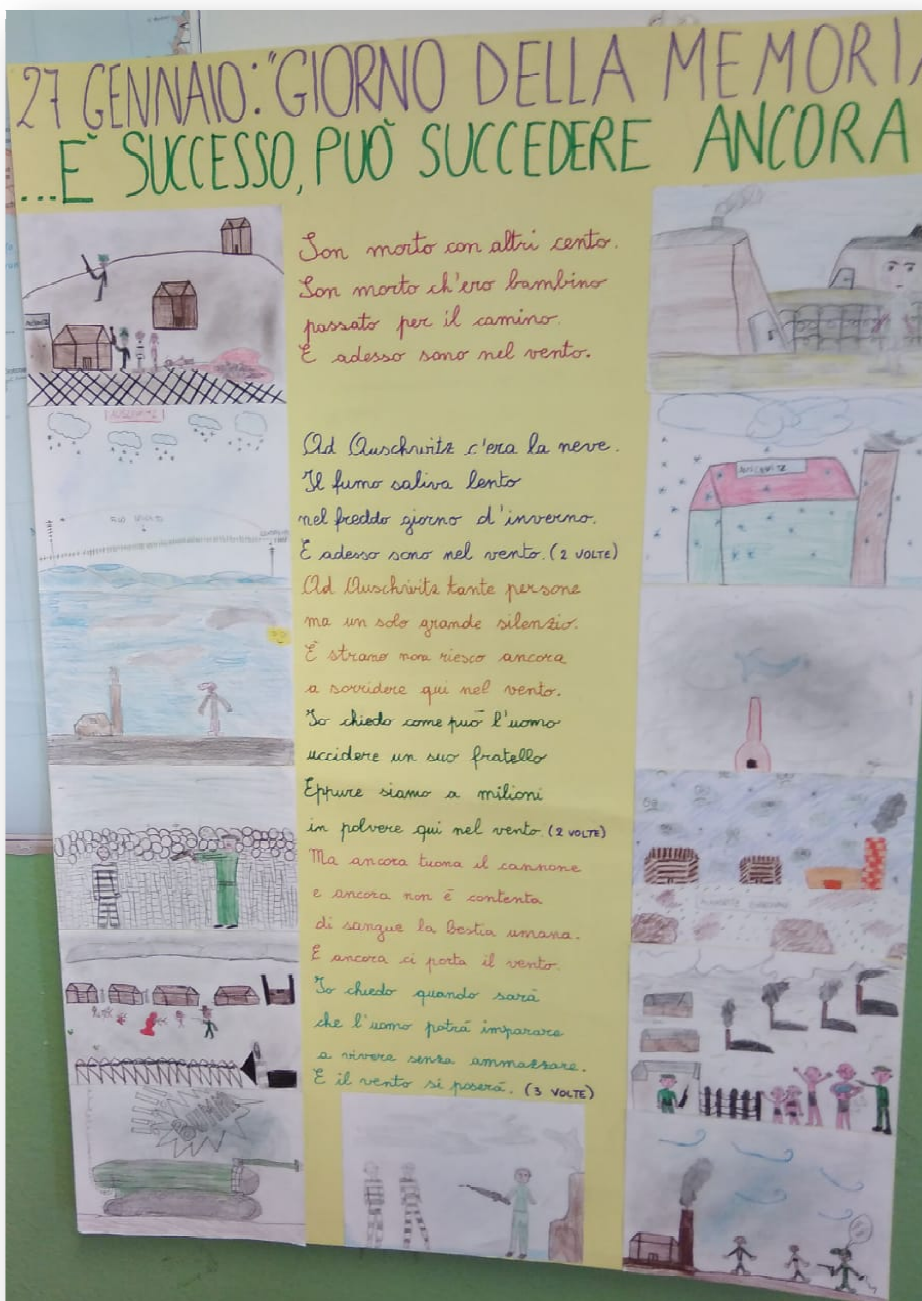 27 GENNAIO: "GIORNO DELLA MEMORIA
...È SUCCESSO, PUÒ SUCCEDERE ANCORA
Son morto con altri cento.
Son morto ch'ero bambino
passato per il camino.
E adesso sono nel vento.
Ad Auschwitz c'era la neve.
Il fumo saliva lento
nel freddo giorno d'inverno.
E adesso sono nel vento. (2 VOLTE)
Ad Auschwitz tante persone
ma un solo grande silenzio.
È strano non riesco ancora
a sorridere qui nel vento.
Io chiedo come può l'uomo
uccidere un suo fratello
Eppure siamo a milioni
in polvere qui nel vento. (2 VOLTE)
Ma ancora tuona il cannone
e ancora non è contenta
di sangue la bestia umana.
E ancora ci porta il vento.
Io chiedo quando sarà
che l'uomo potrà imparare
a vivere senza ammazzare.
E il vento si poserà. (3 VOLTE)
AUSCHWITZ
AUSCHWITZ
BUMM